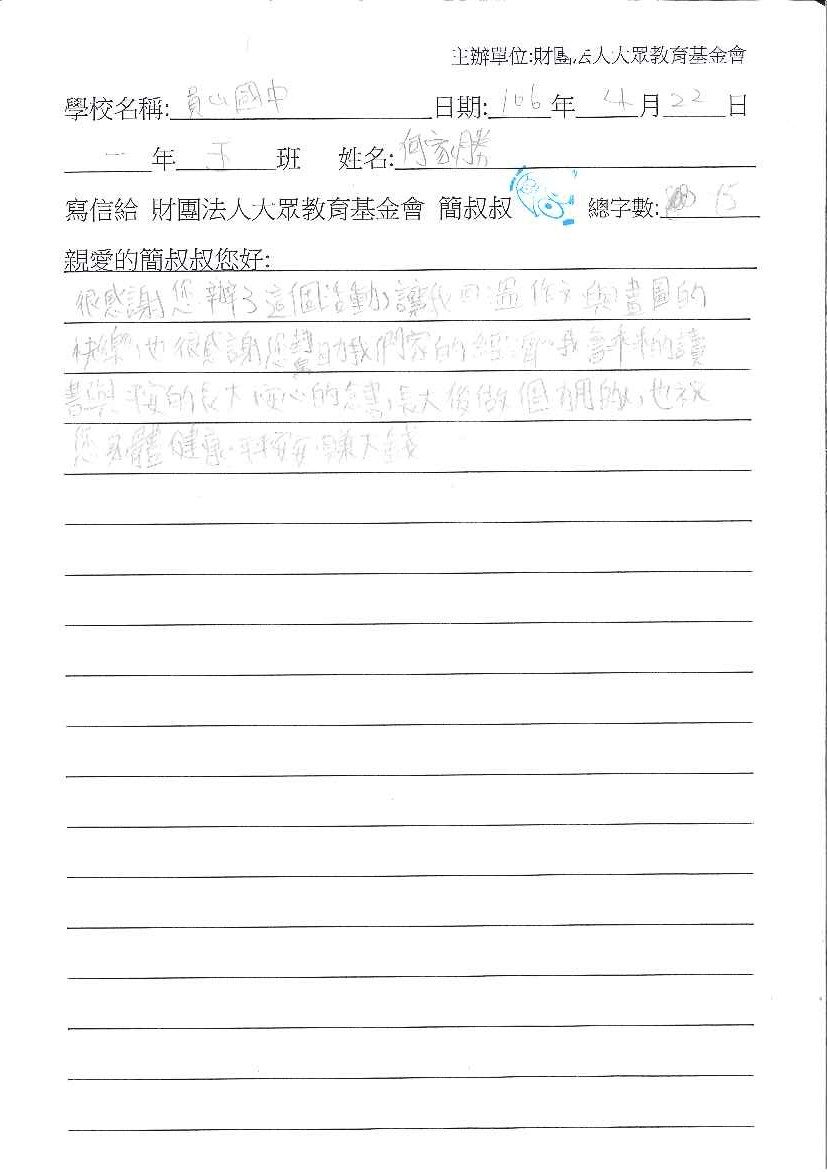 主辦單位:財團法人大眾教育基金會
學校名稱:員山國中 日期:106年 4月22日
一年 玉 班 姓名:何家勝
寫信給 財團法人大眾教育基金會 簡叔叔 總字數: 15
親愛的簡叔叔您好:
很感謝您辦了這個活動,讓我回溫作文與畫圖的
快樂,也很感謝您幫助我們家的經濟,我會乖乖的讀
書與平安的長大 心的念書,長大後做個有用的人,也祝
您身體健康.平平安安.賺大錢